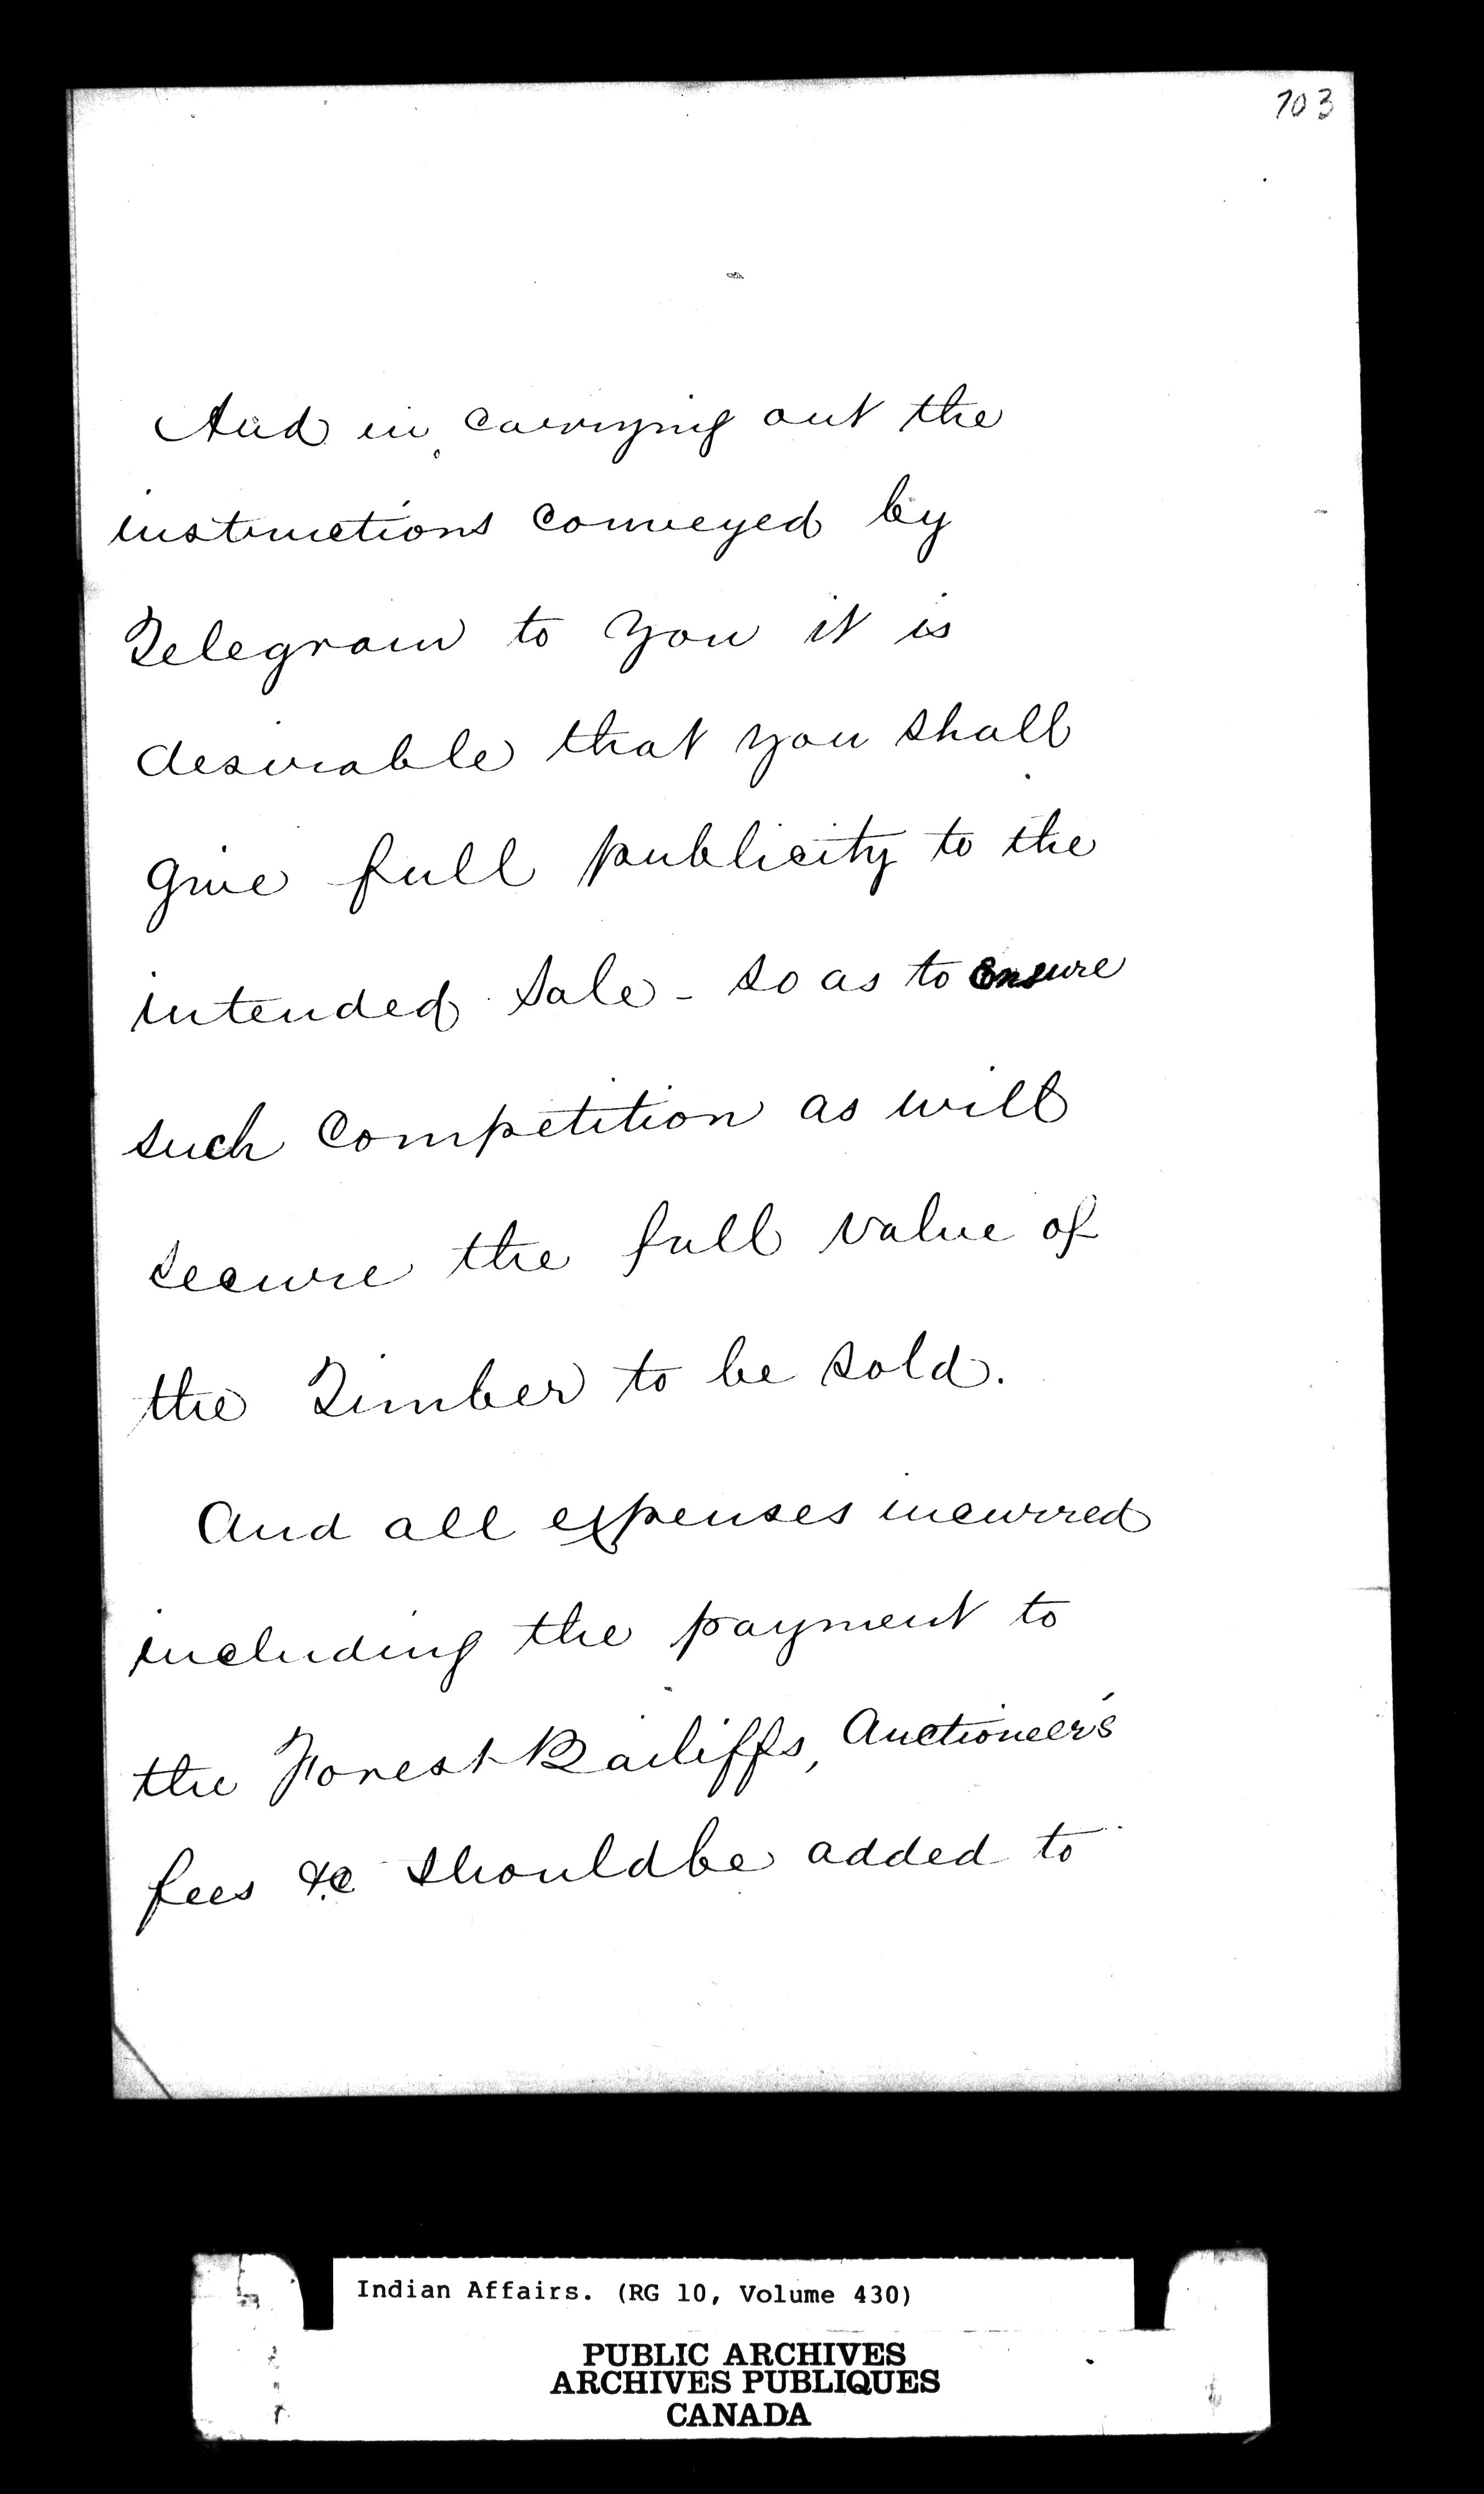 703
And in carrying out the
instructions conveyed by
Telegram to you it is
desirable that you shall
give full publicity to the
intended Sale - so as to Ensure
such Competition as will
secure the full value of
the Timber to be sold.
And all expenses incurred
including the payment to
the Forest Bailiffs, Auctioneer's
fees &c should be added to
Indian Affairs. (RG 10, Volume 430)
PUBLIC ARCHIVES
ARCHIVES PUBLIQUES
CANADA